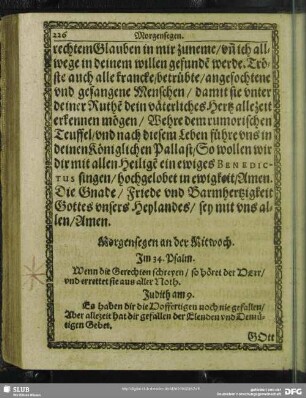 226 Morgensegen.
rechtem Glauben in mir zuneme/ vñ ich all=
wege in deinem willen gefundē werde. Trö=
ste auch alle krancke/ betrübte/ angefochtene
vnd gefangene Menschen/ damit sie vnter
deiner Ruthē dein väterliches Hertz allezeit
erkennen mögen/ Wehre dem rumorischen
Teuffel/ vnd nach diesem Leben führe vns in
deinen Königlichen Pallast/ So wollen wir
dir mit allen Heiligē ein ewiges BENEDIC-
TUS singen/ hochgelobet in ewigkeit/ Amen.
Die Gnade/ Friede vnd Barmhertzigkeit
Gottes vnsers Heylandes/ sey mit vns al=
len/ Amen.
Morgensegen an der Mitwoch.
Im 34. Psalm.
Wenn die Gerechten schreyen/ so höret der HErr/
vnd errettet sie aus aller Noth.
Judith am 9.
Es haben dir die Hoffertigen noch nie gefallen/
Aber allezeit hat dir gefallen der Elenden vnd Demü=
tigen Gebet.
GOtt
SLUB
Wir führen Wissen.
DFG